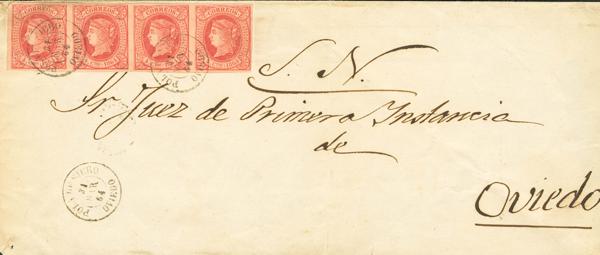 CORREOS CORREOS CORREOS CORREOS
S. N.
Sr. Juez de Primera Instancia
de
Oviedo
POLA DE SIERO
31
MAR
64
OVIEDO